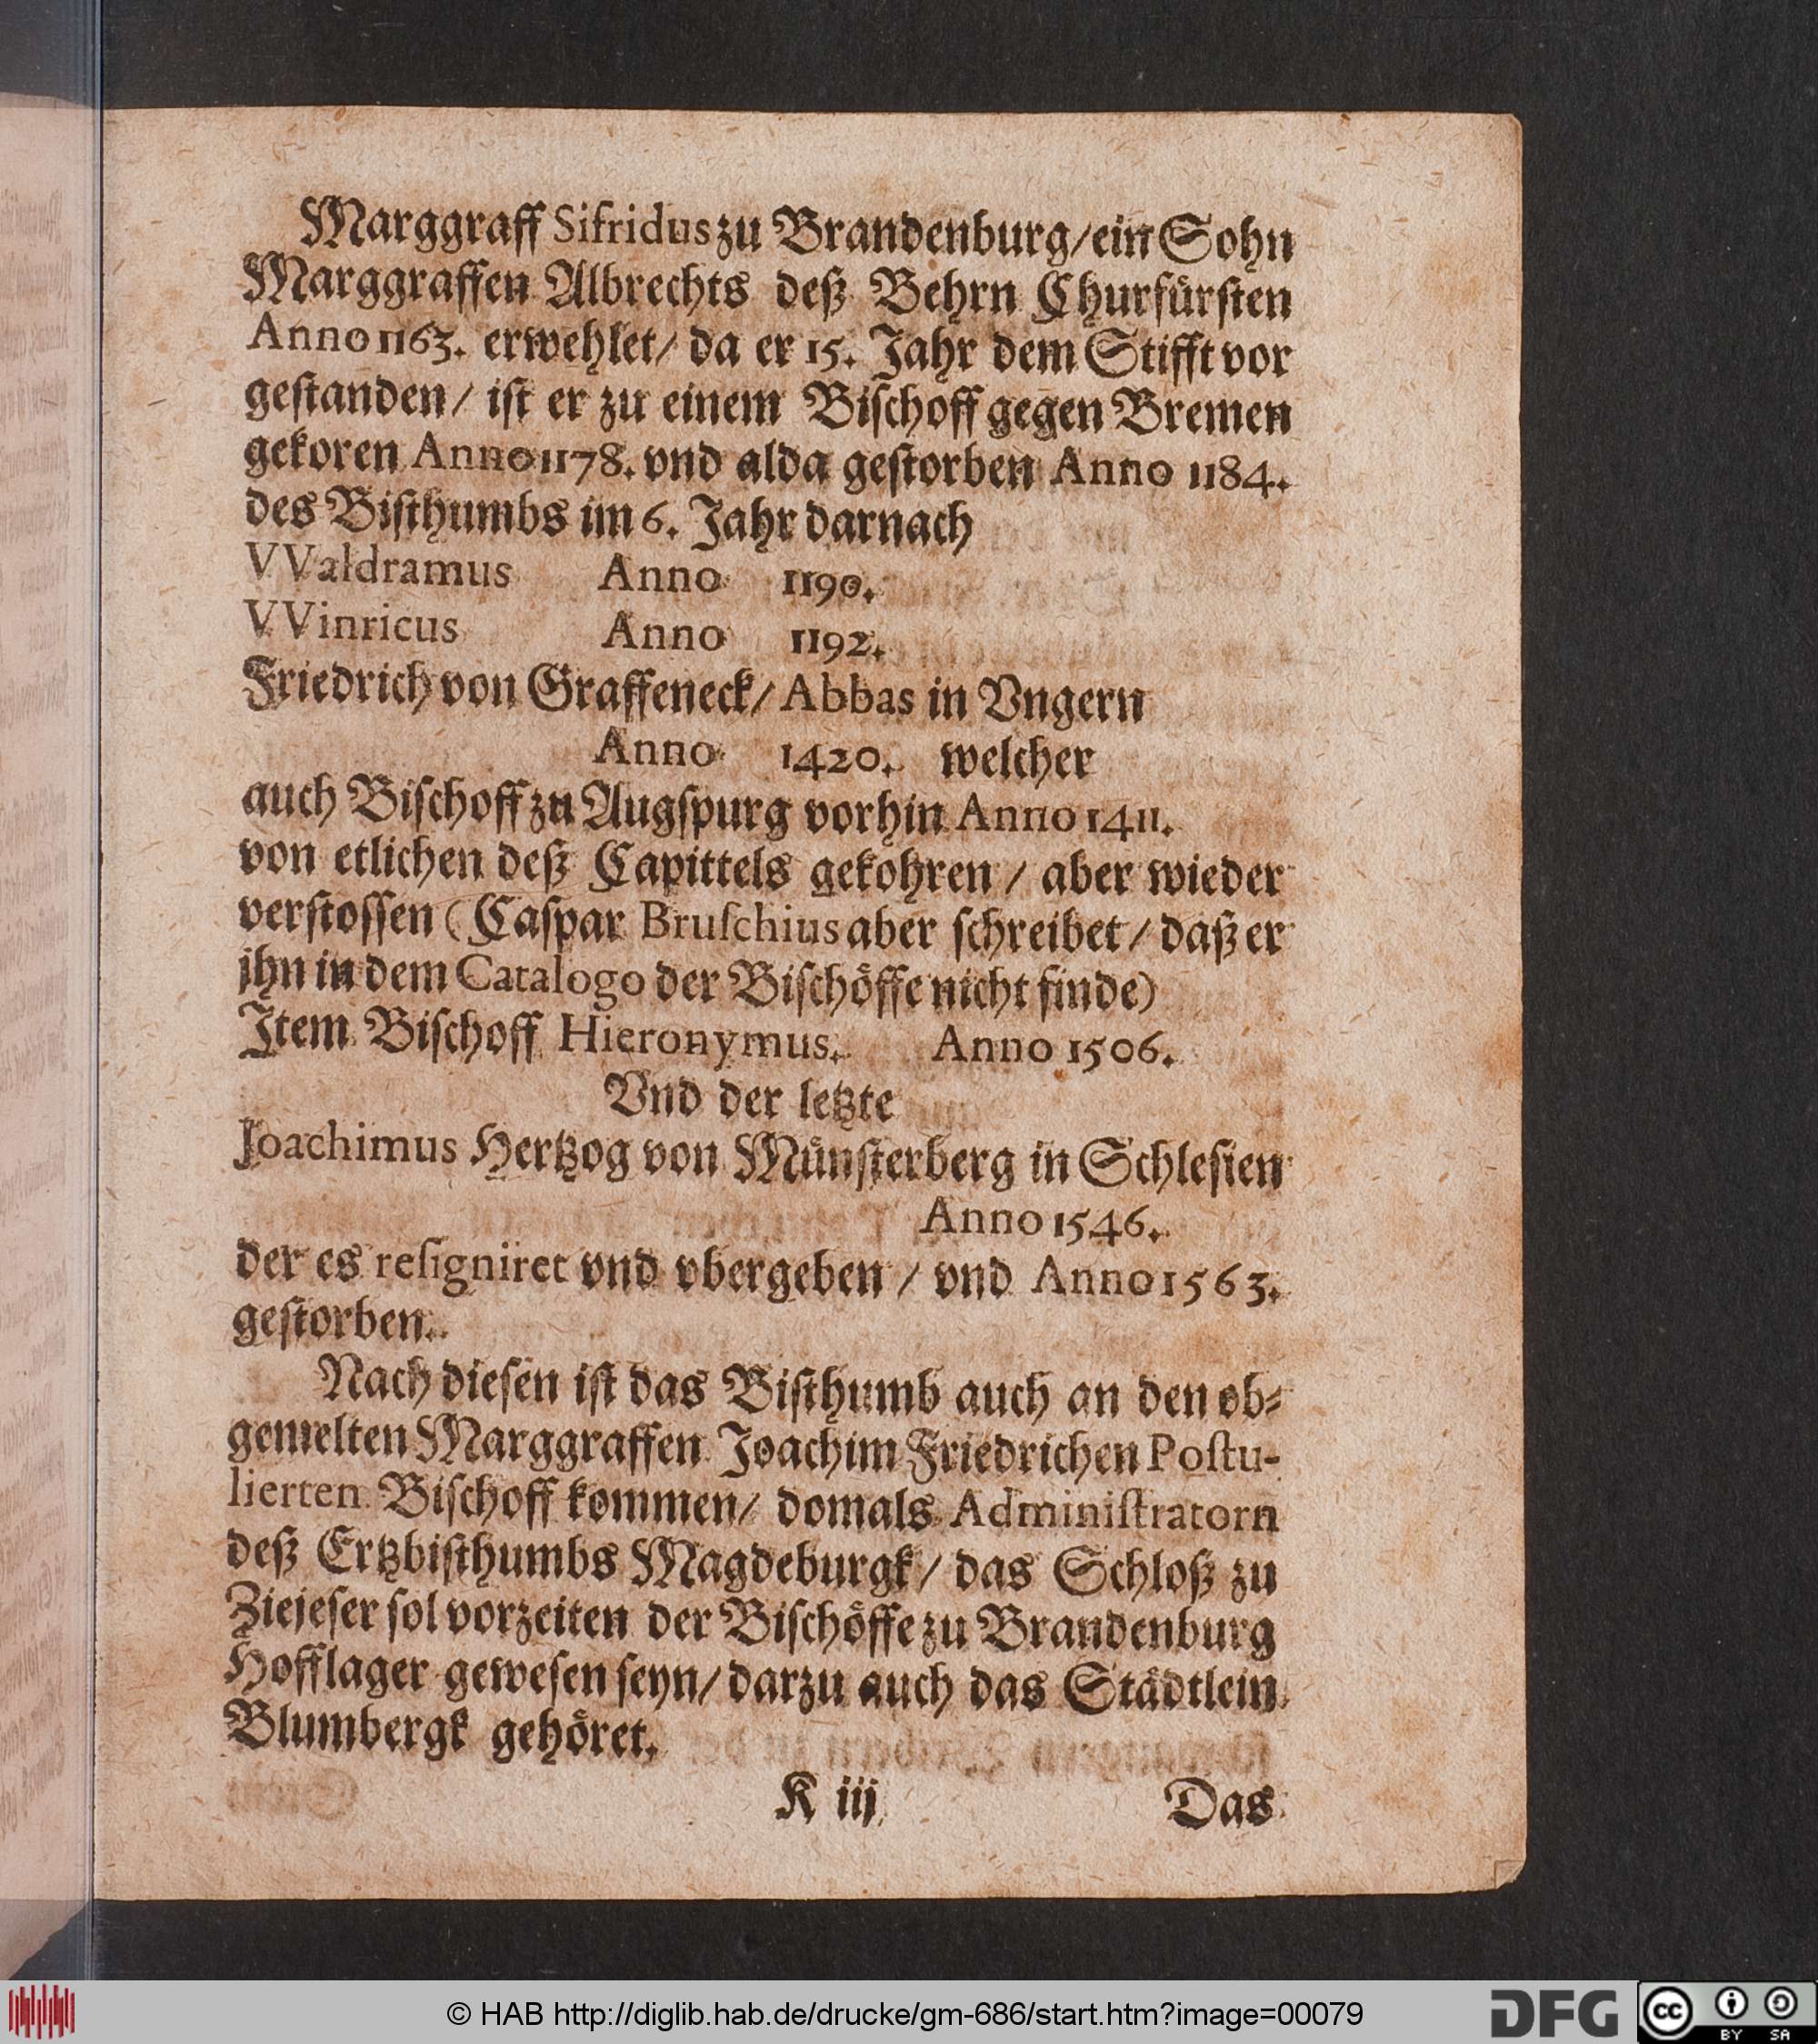 Marggraff Sifridus zu Brandenburg/ein Sohn
Marggraffen Albrechts deß Behrn Churfuͤrſten
Anno 1163. erwehlet/ da er 15. Jahr dem Stifft vor
geſtanden/ iſt er zu einem Biſchoff gegen Bremen
gekoren Anno 1178. vnd alda geſtorben Anno 1184.
des Biſthumbs im 6. Jahr darnach
VValdramus Anno 1190.
VVinricus Anno 1192.
Friedrich von Graffeneck/ Abbas in Vngern
Anno 1420. welcher
auch Biſchoff zu Augſpurg vorhin Anno 1411.
von etlichen deß Capittels gekohren / aber wieder
verſtoſſen (Caſpar Bruſchius aber ſchreibet / daß er
jhn in dem Catalogo der Biſchoͤffe nicht finde)
Item Biſchoff Hieronymus. Anno 1506.
Vnd der letzte
Joachimus Hertzog von Muͤnſterberg in Schleſien
Anno 1546.
der es reſigniret vnd vbergeben / vnd Anno 1563.
geſtorben.
Nach dieſen iſt das Biſthumb auch an den ob⸗
gemelten Marggraffen Joachim Friedrichen Poſtu-
lierten Biſchoff kommen/ domals Adminiſtratorn
deß Ertzbiſthumbs Magdeburgk/ das Schloß zu
Ziejeſer ſol vorzeiten der Biſchoͤffe zu Brandenburg
Hofflager geweſen ſeyn/ darzu auch das Staͤdtlein
Blumbergk gehoͤret.
K iij Das
© HAB http://diglib.hab.de/drucke/gm-686/start.htm?image=00079
DFG
cc BY SA